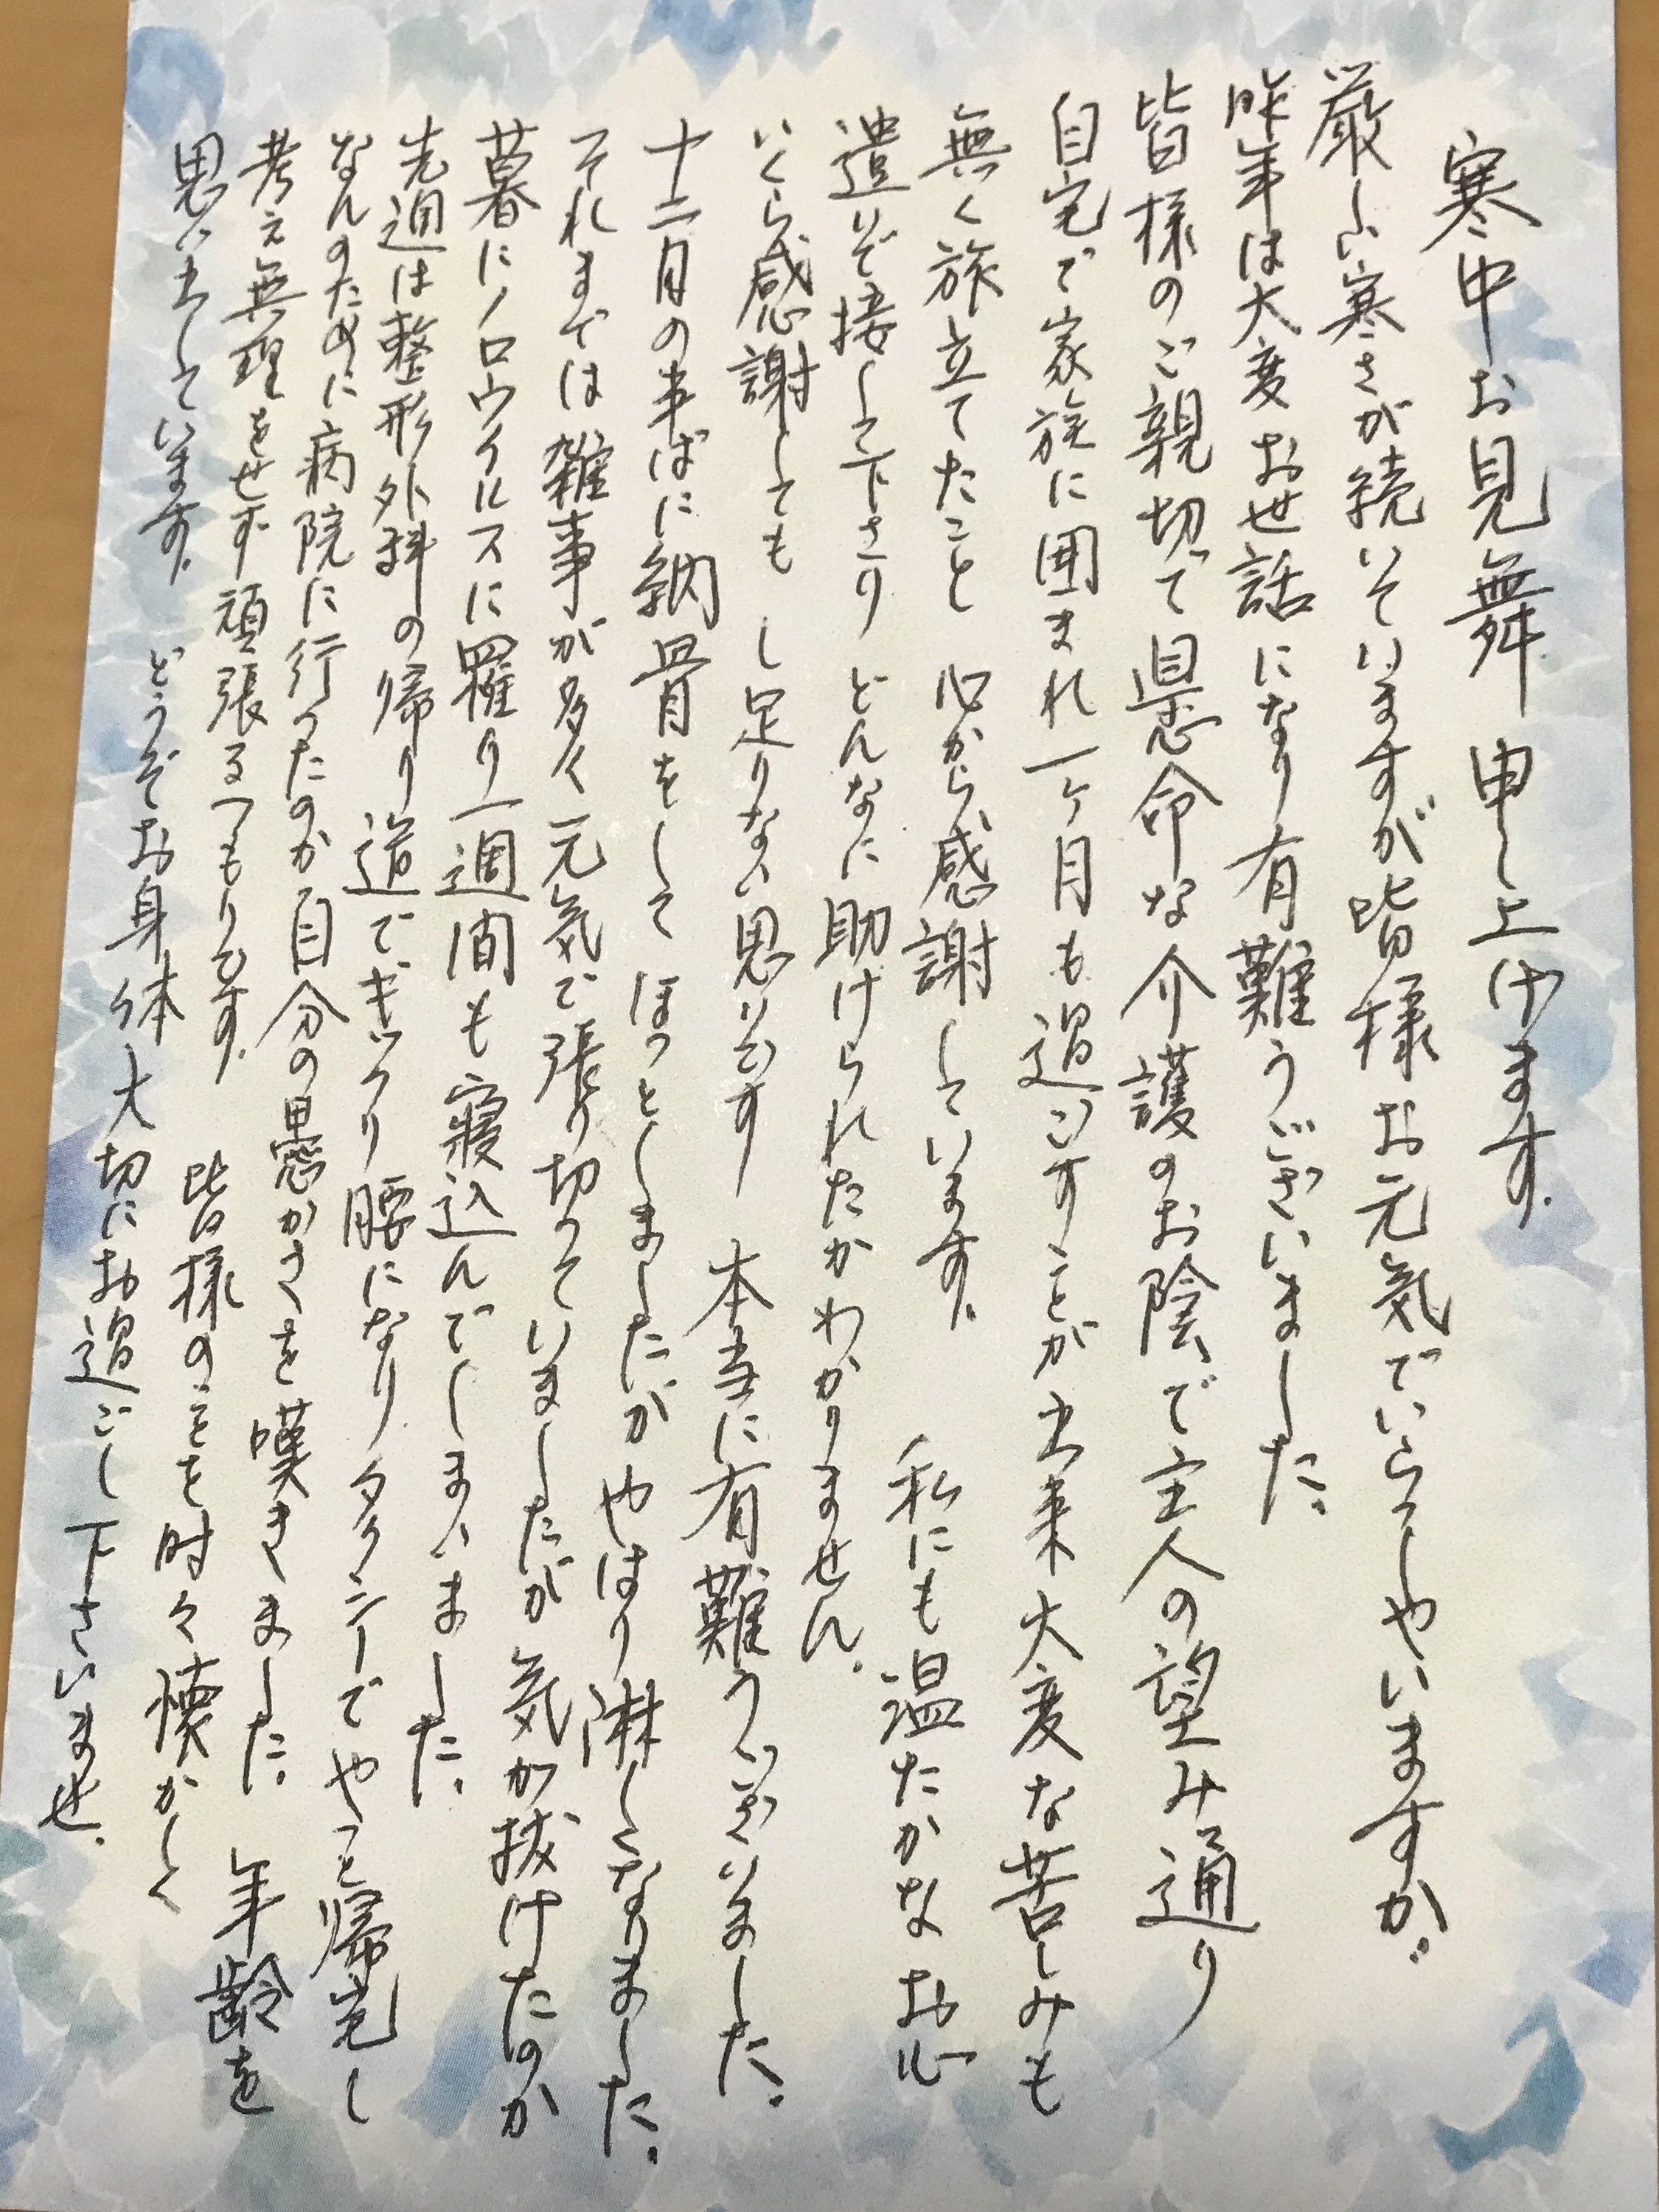 寒中お見舞申し上げます。
厳しい寒さが続いていますが皆様お元気でいらっしゃいますか。
昨年は大変お世話になり有難うございました。
皆様のご親切で懸命な介護のお陰で主人の望み通り
自宅で家族に囲まれ一ヶ月も過ごすことが出来大変な苦しみも
無く旅立てたこと心から感謝しています。私にも温たかなお心
遣いで接して下さりどんなに助けられたかわかりません。
いくら感謝してもし足りない思いです本当に有難うございました。
十二月の半ばに納骨をしてほっとしましたがやはり淋しくなりました。
それまでは雑事が多く元気で張り切っていましたが気が抜けたのか
暮にノロウイルスに罹り一週間も寝込んでしまいました。
先週は整形外科の帰り道でギックリ腰になりタクシーでやっと帰宅し
なんのために病院に行ったのか自分の愚かさを嘆きました。年齢を
考え無理をせず頑張るつもりです。皆様のことを時々懐かしく
思い出しています。どうぞお身体大切にお過ごし下さいませ。